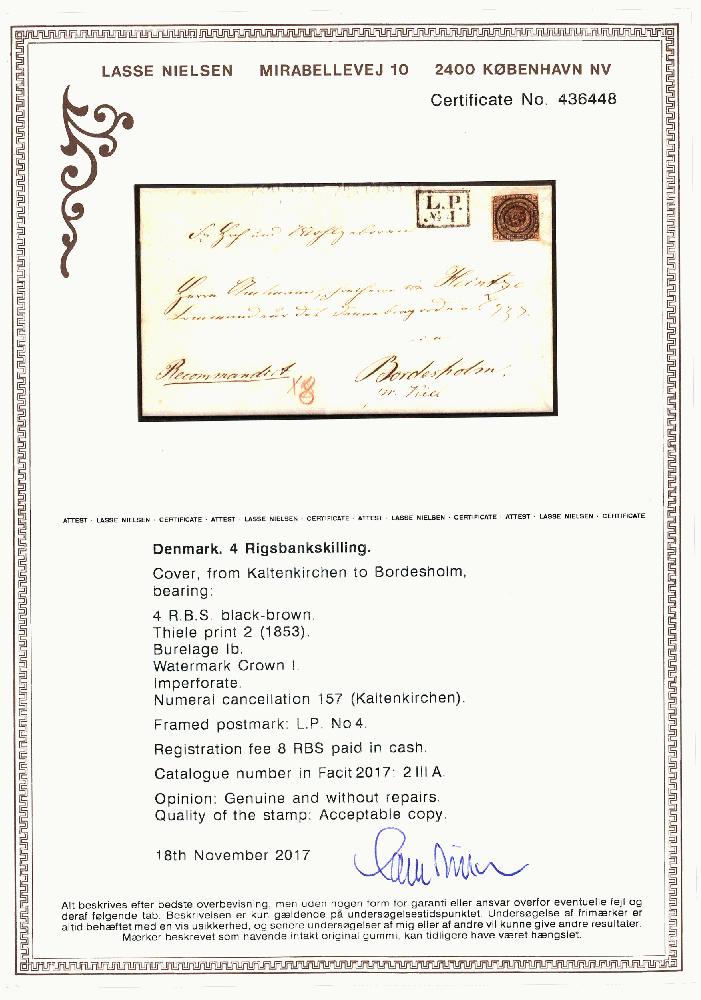 LASSE NIELSEN MIRABELLEVEJ 10 2400 KØBENHAVN NV
Certificate No. 436448
L.P.
№ 4
Heintze
Recommandirt
8
Bordesholm.
ATTEST · LASSE NIELSEN · CERTIFICATE · ATTEST · LASSE NIELSEN · CERTIFICATE · ATTEST · LASSE NIELSEN · CERTIFICATE · ATTEST · LASSE NIELSEN · CERTIFICATE
Denmark. 4 Rigsbankskilling.
Cover, from Kaltenkirchen to Bordesholm,
bearing:
4 R.B.S. black-brown.
Thiele print 2 (1853).
Burelage Ib.
Watermark Crown I.
Imperforate.
Numeral cancellation 157 (Kaltenkirchen).
Framed postmark: L.P. No 4.
Registration fee 8 RBS paid in cash.
Catalogue number in Facit 2017: 2 III A.
Opinion: Genuine and without repairs.
Quality of the stamp: Acceptable copy.
18th November 2017
Alt beskrives efter bedste overbevisning, men uden nogen form for garanti eller ansvar overfor eventuelle fejl og
deraf følgende tab. Beskrivelsen er kun gældende på undersøgelsestidspunktet. Undersøgelse af frimærker er
altid behæftet med en vis usikkerhed, og senere undersøgelser af mig eller af andre vil kunne give andre resultater.
Mærker beskrevet som havende intakt original gummi, kan tidligere have været hængslet.